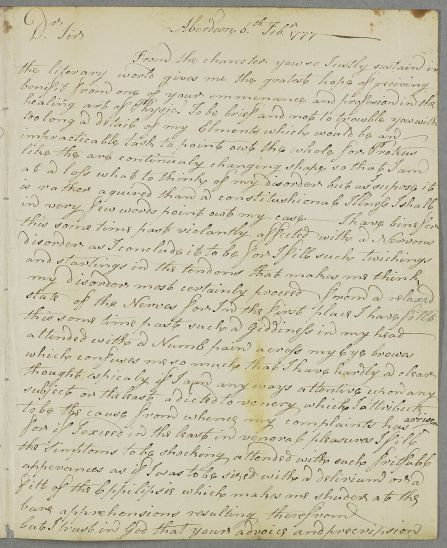 Aberdeen 6.th Feb.r 1777
D.r Sir
From the charecter you so Justly sustain in
the literary world gives me the gratest hope of reciving
benefit from one of your emmenance and professor in the
healing art of Phisic. To be brief and not to trouble you with
too long a detail of my elments which would be an
impracticable task to point out the whole for Proteus
like the are continualy changing shape so that I am
at a loss what to think of my disorder but as supose it
is rather aquired than a constitutional Illness I shall
in very few words point out my case I have bine for
this some time past violantly affected with a Nervous
disorder as I conclude it to be for I fill such twichings
and startings in the tendons that makes me think
my disorder most certainly proceed from a relaxed
state of the Nerves for In the first place I have fillt
this some time past such a Giddiness in my head
attended with a Numb pain across my Eye brows
which confuses me so much that I have hardly a clear
thought ispicaly if I am any ways attentive upon any
subject or the least adicted to venery which I attribute
to be the cause from whence my complaints has arrisen
for if I exceed in the least in venoral pleasures I fill
the simptoms to be shocking attended with such
apperances as if I was to be sized with a delirium or a
fitt of the Eppilipsie which makes me shuder at the
bare apprehensions resulting therefrom
but I trust in God that your advoice and preecripsion